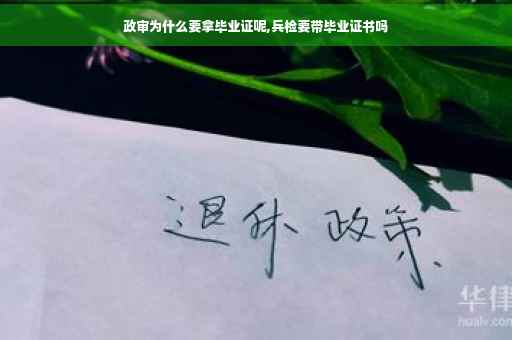 政审为什么要拿毕业证呢,兵检要带毕业证书吗
退休 政策
华律
hualv.com